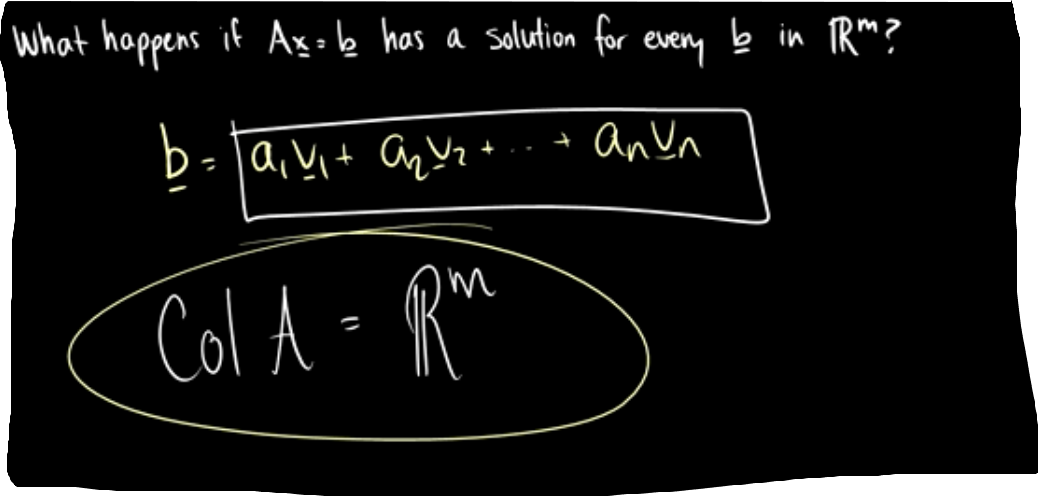 What happens if Ax = b has a solution for every b in ℝᵐ?
b = a₁v₁ + a₂v₂ + ... + aₙvₙ
Col A = ℝᵐ